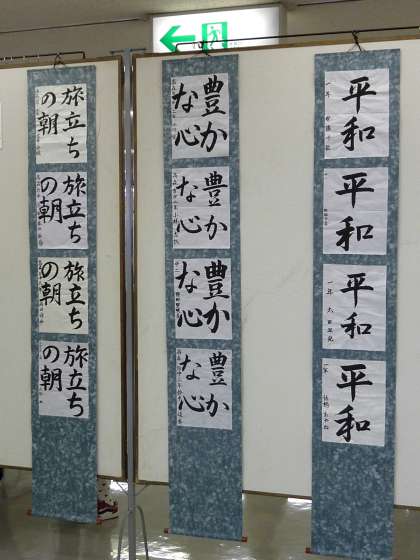 平和
平和
平和
平和
豊か
な心
豊か
な心
豊か
な心
豊か
な心
旅立ち
の朝
旅立ち
の朝
旅立ち
の朝
旅立ち
の朝